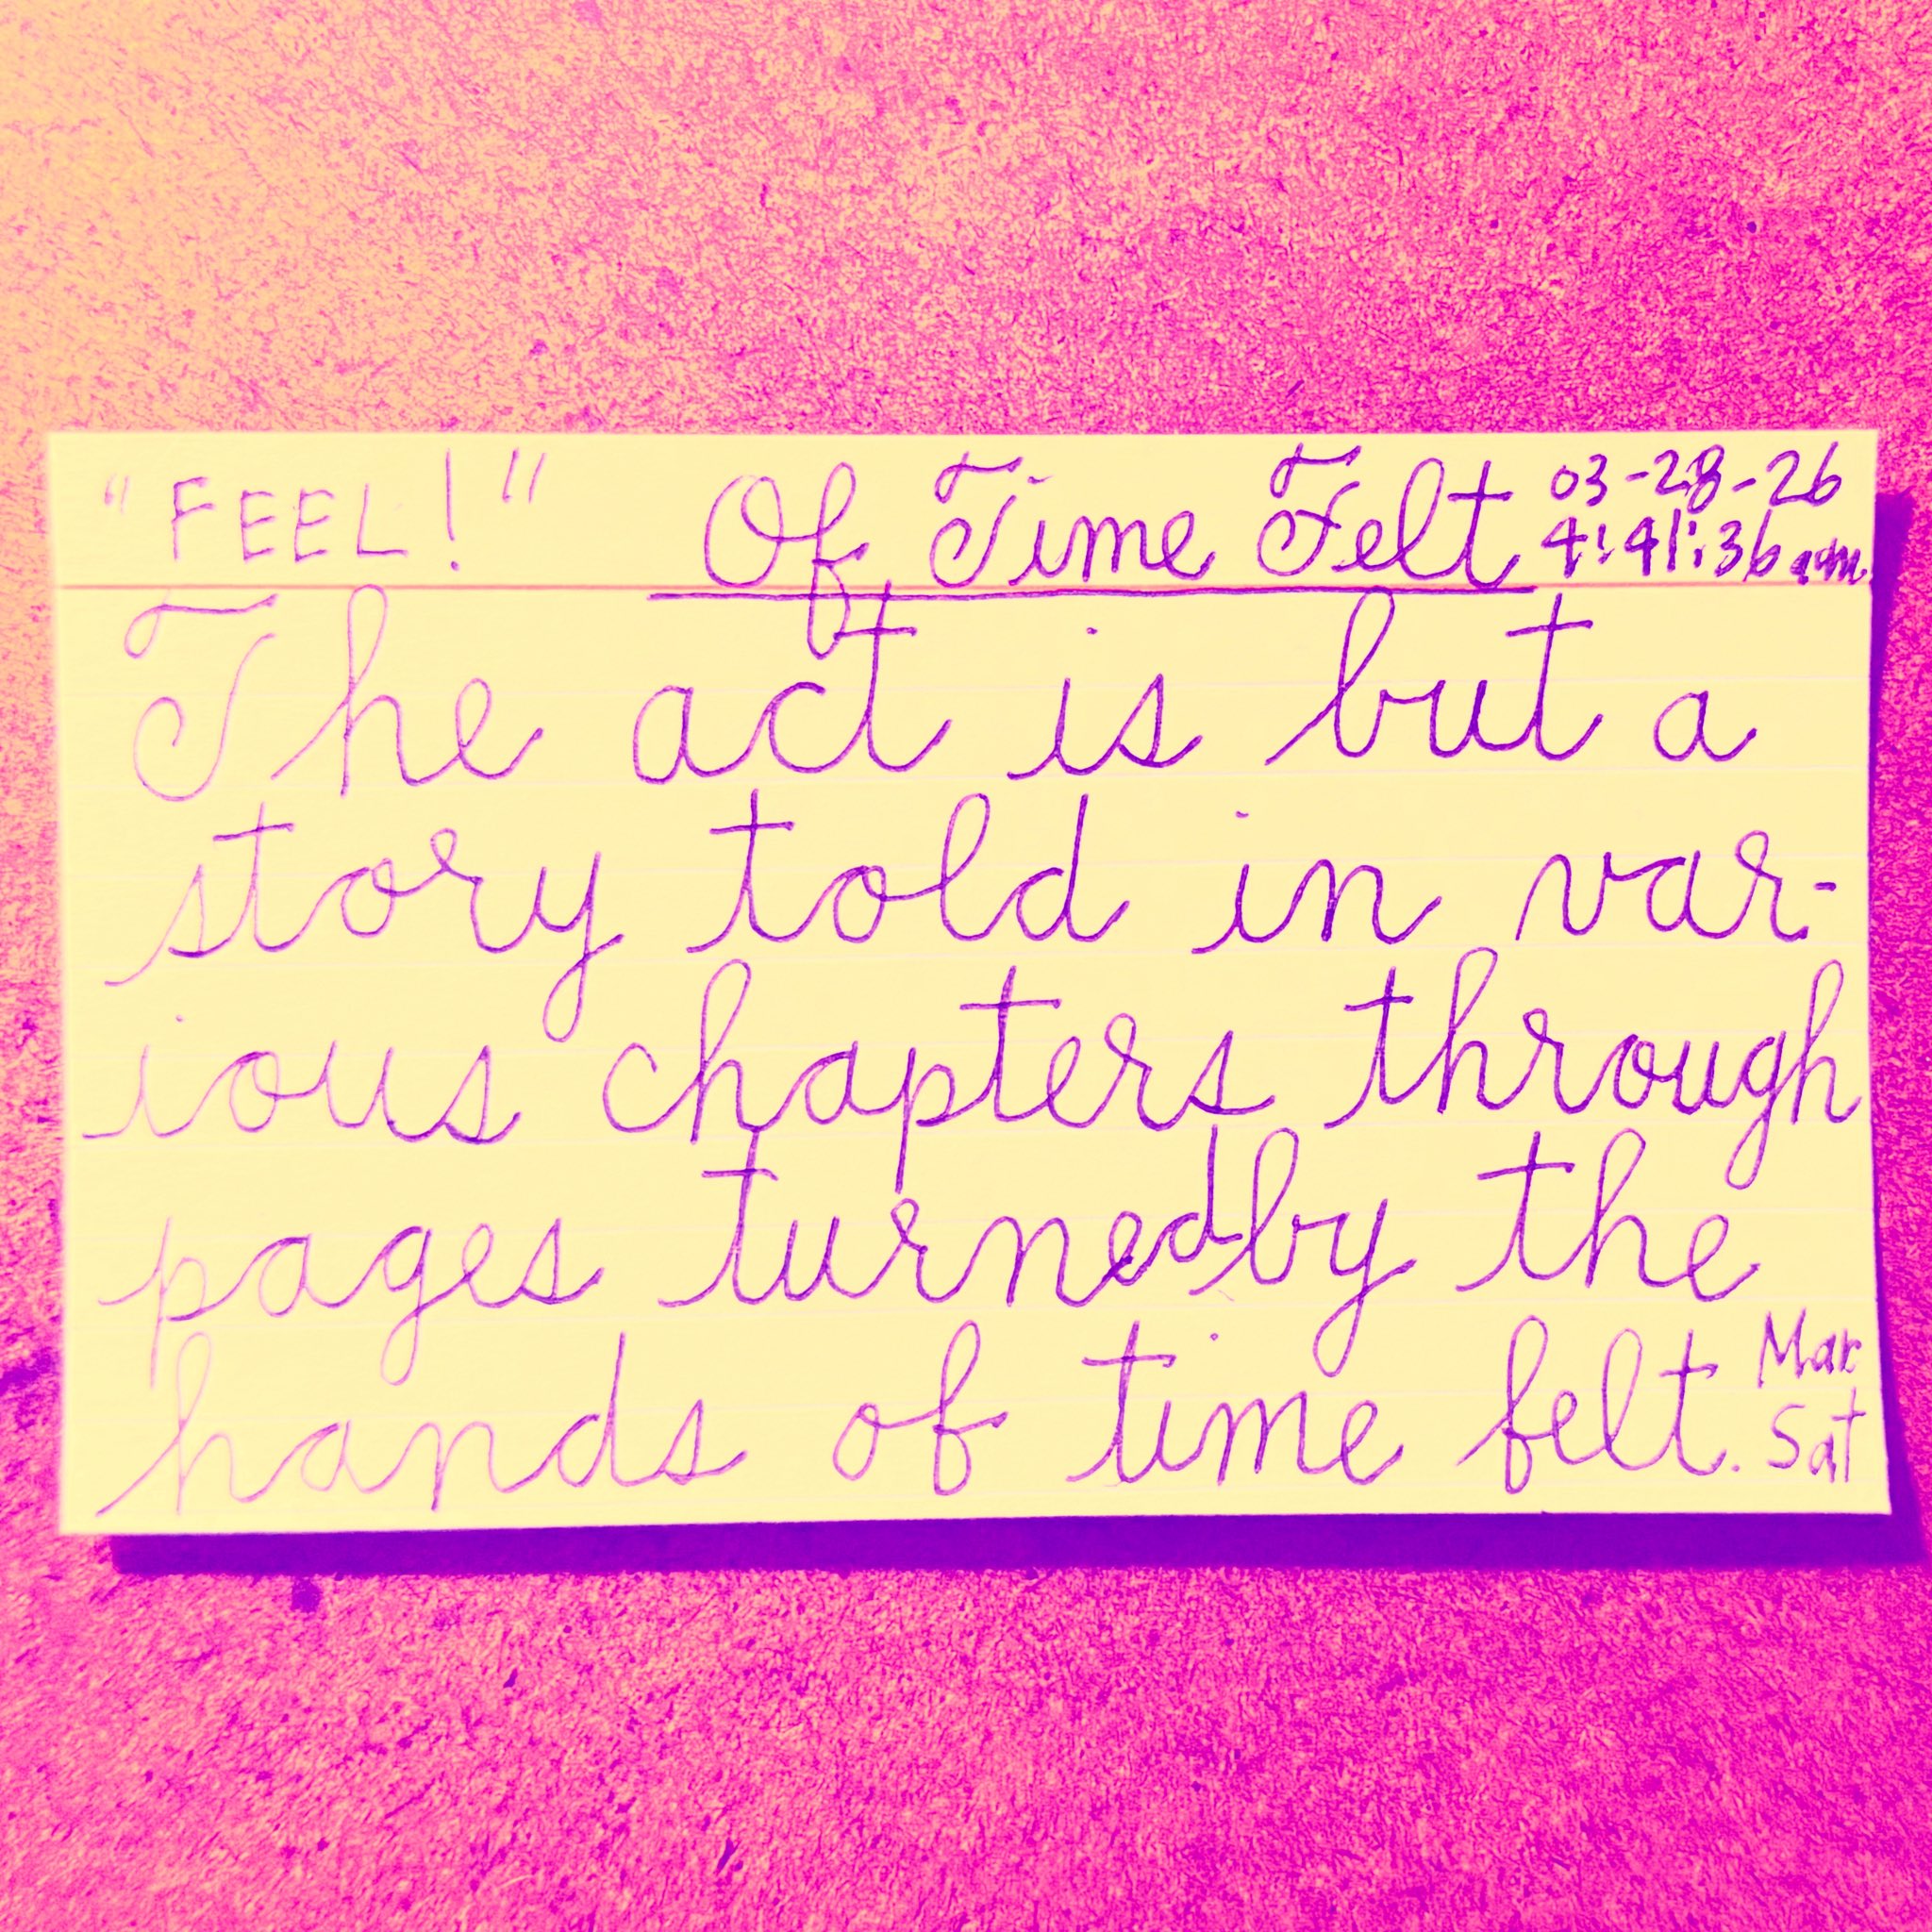 "FEEL!" Of Time Felt 03-28-26
4:41:36 am
The act is but a
story told in var-
ious chapters through
pages turned by the
hands of time felt.
Mar
Sat